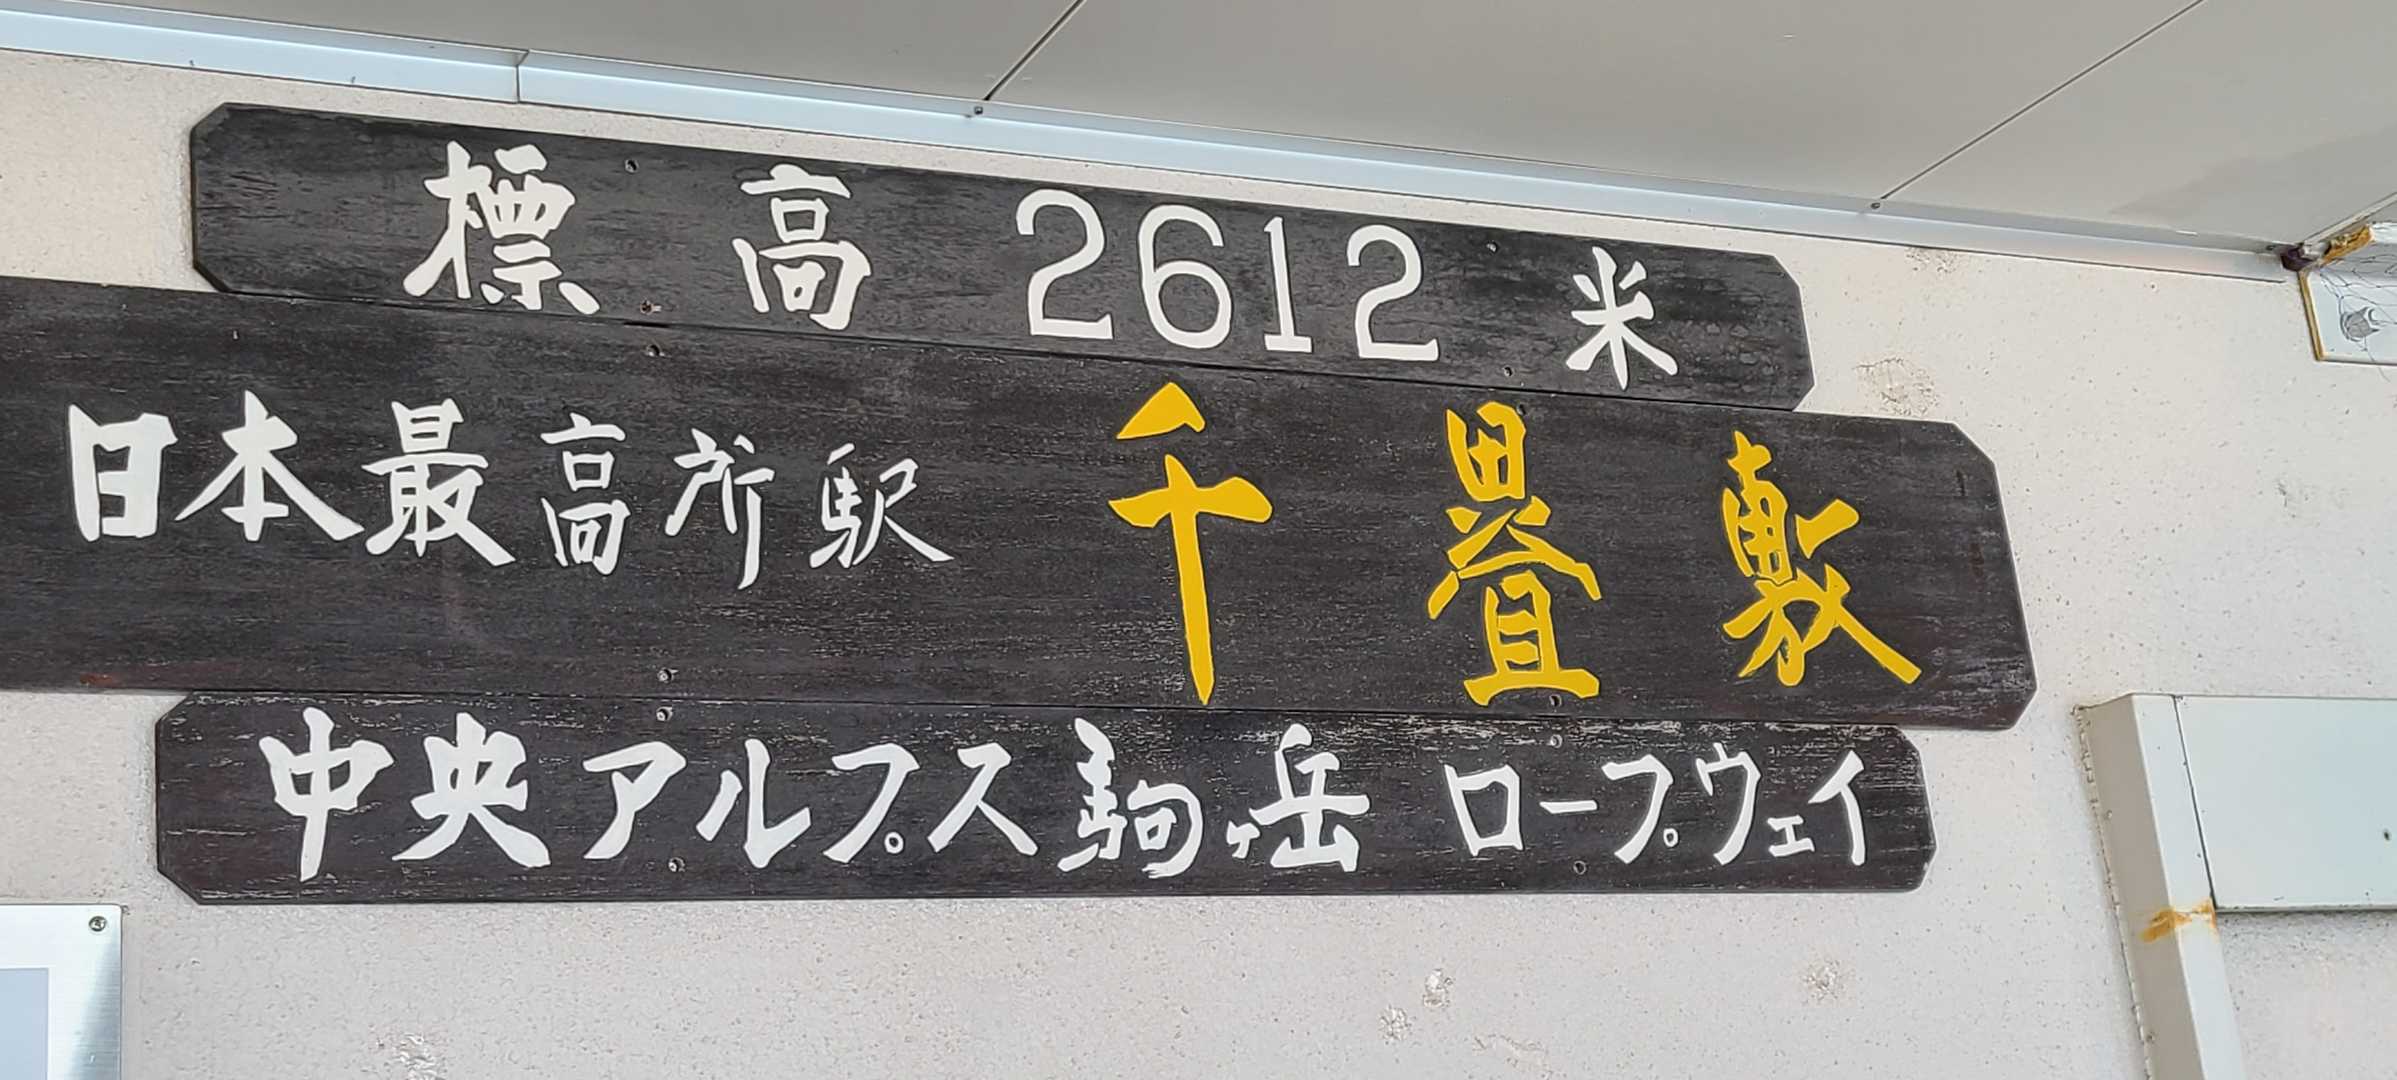 標高2612米
日本最高所駅 千畳敷
中央アルプス駒ヶ岳 ロープウェイ